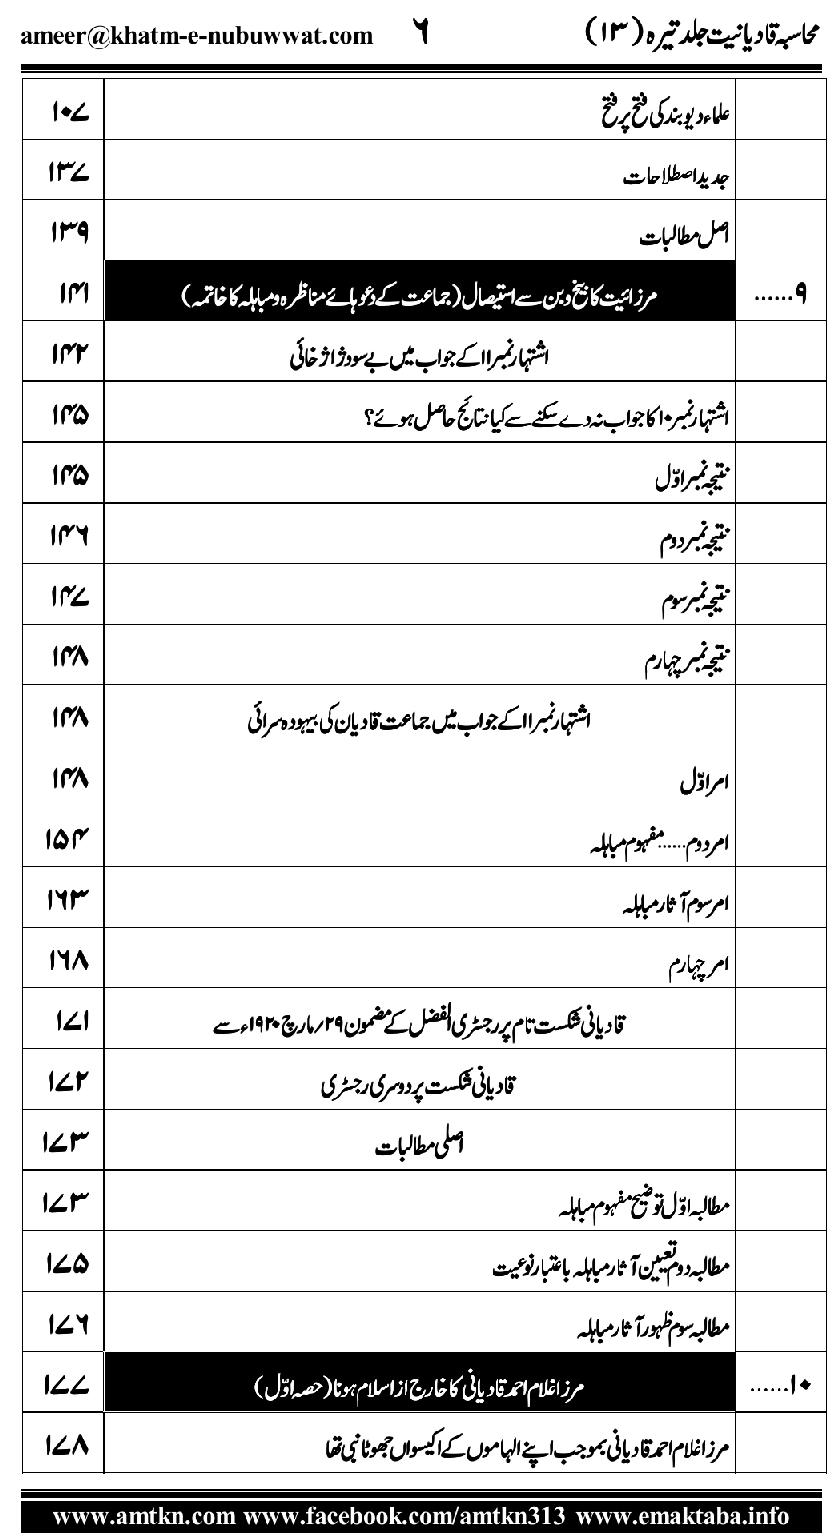 محاسبہ قادیانیت جلد تیرہ (۱۳) ۶ ameer@khatm-e-nubuwwat.com
علماء دیوبند کی فتح پر فتح ۱۰۷
جدید اصطلاحات ۱۳۷
اصل مطالبات ۱۳۹
۹...... مرزائیت کا بیخ و بن سے استیصال (جماعت کے دعوہائے مناظرہ و مباہلہ کا خاتمہ) ۱۴۱
اشتہار نمبر۱۱ کے جواب میں بے سود ژاژخائی ۱۴۲
اشتہار نمبر۱۰ کا جواب نہ دے سکنے سے کیا نتائج حاصل ہوئے؟ ۱۴۵
نتیجہ نمبر اوّل ۱۴۵
نتیجہ نمبر دوم ۱۴۶
نتیجہ نمبر سوم ۱۴۷
نتیجہ نمبر چہارم ۱۴۸
اشتہار نمبر۱۱ کے جواب میں جماعت قادیان کی بیہودہ سرائی ۱۴۸
امر اوّل ۱۴۸
امر دوم...... مفہوم مباہلہ ۱۵۴
امر سوم آثار مباہلہ ۱۶۳
امر چہارم ۱۶۸
قادیانی شکست تام پر رجسٹری الفضل کے مضمون ۲۹؍مارچ ۱۹۲۰ء سے ۱۷۱
قادیانی شکست پر دوسری رجسٹری ۱۷۲
اصلی مطالبات ۱۷۳
مطالبہ اوّل توضیح مفہوم مباہلہ ۱۷۳
مطالبہ دوم تعیین آثار مباہلہ باعتبار نوعیت ۱۷۵
مطالبہ سوم ظہور آثار مباہلہ ۱۷۶
۱۰...... مرزا غلام احمد قادیانی کا خارج از اسلام ہونا (حصہ اوّل) ۱۷۷
مرزا غلام احمد قادیانی بموجب اپنے الہاموں کے اکیسواں جھوٹا نبی تھا ۱۷۸
www.amtkn.com www.facebook.com/amtkn313 www.emaktaba.info